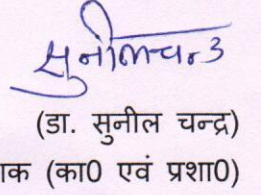 सुनील चन्द्र
(डा. सुनील चन्द्र)
ाक (का0 एवं प्रशा0)